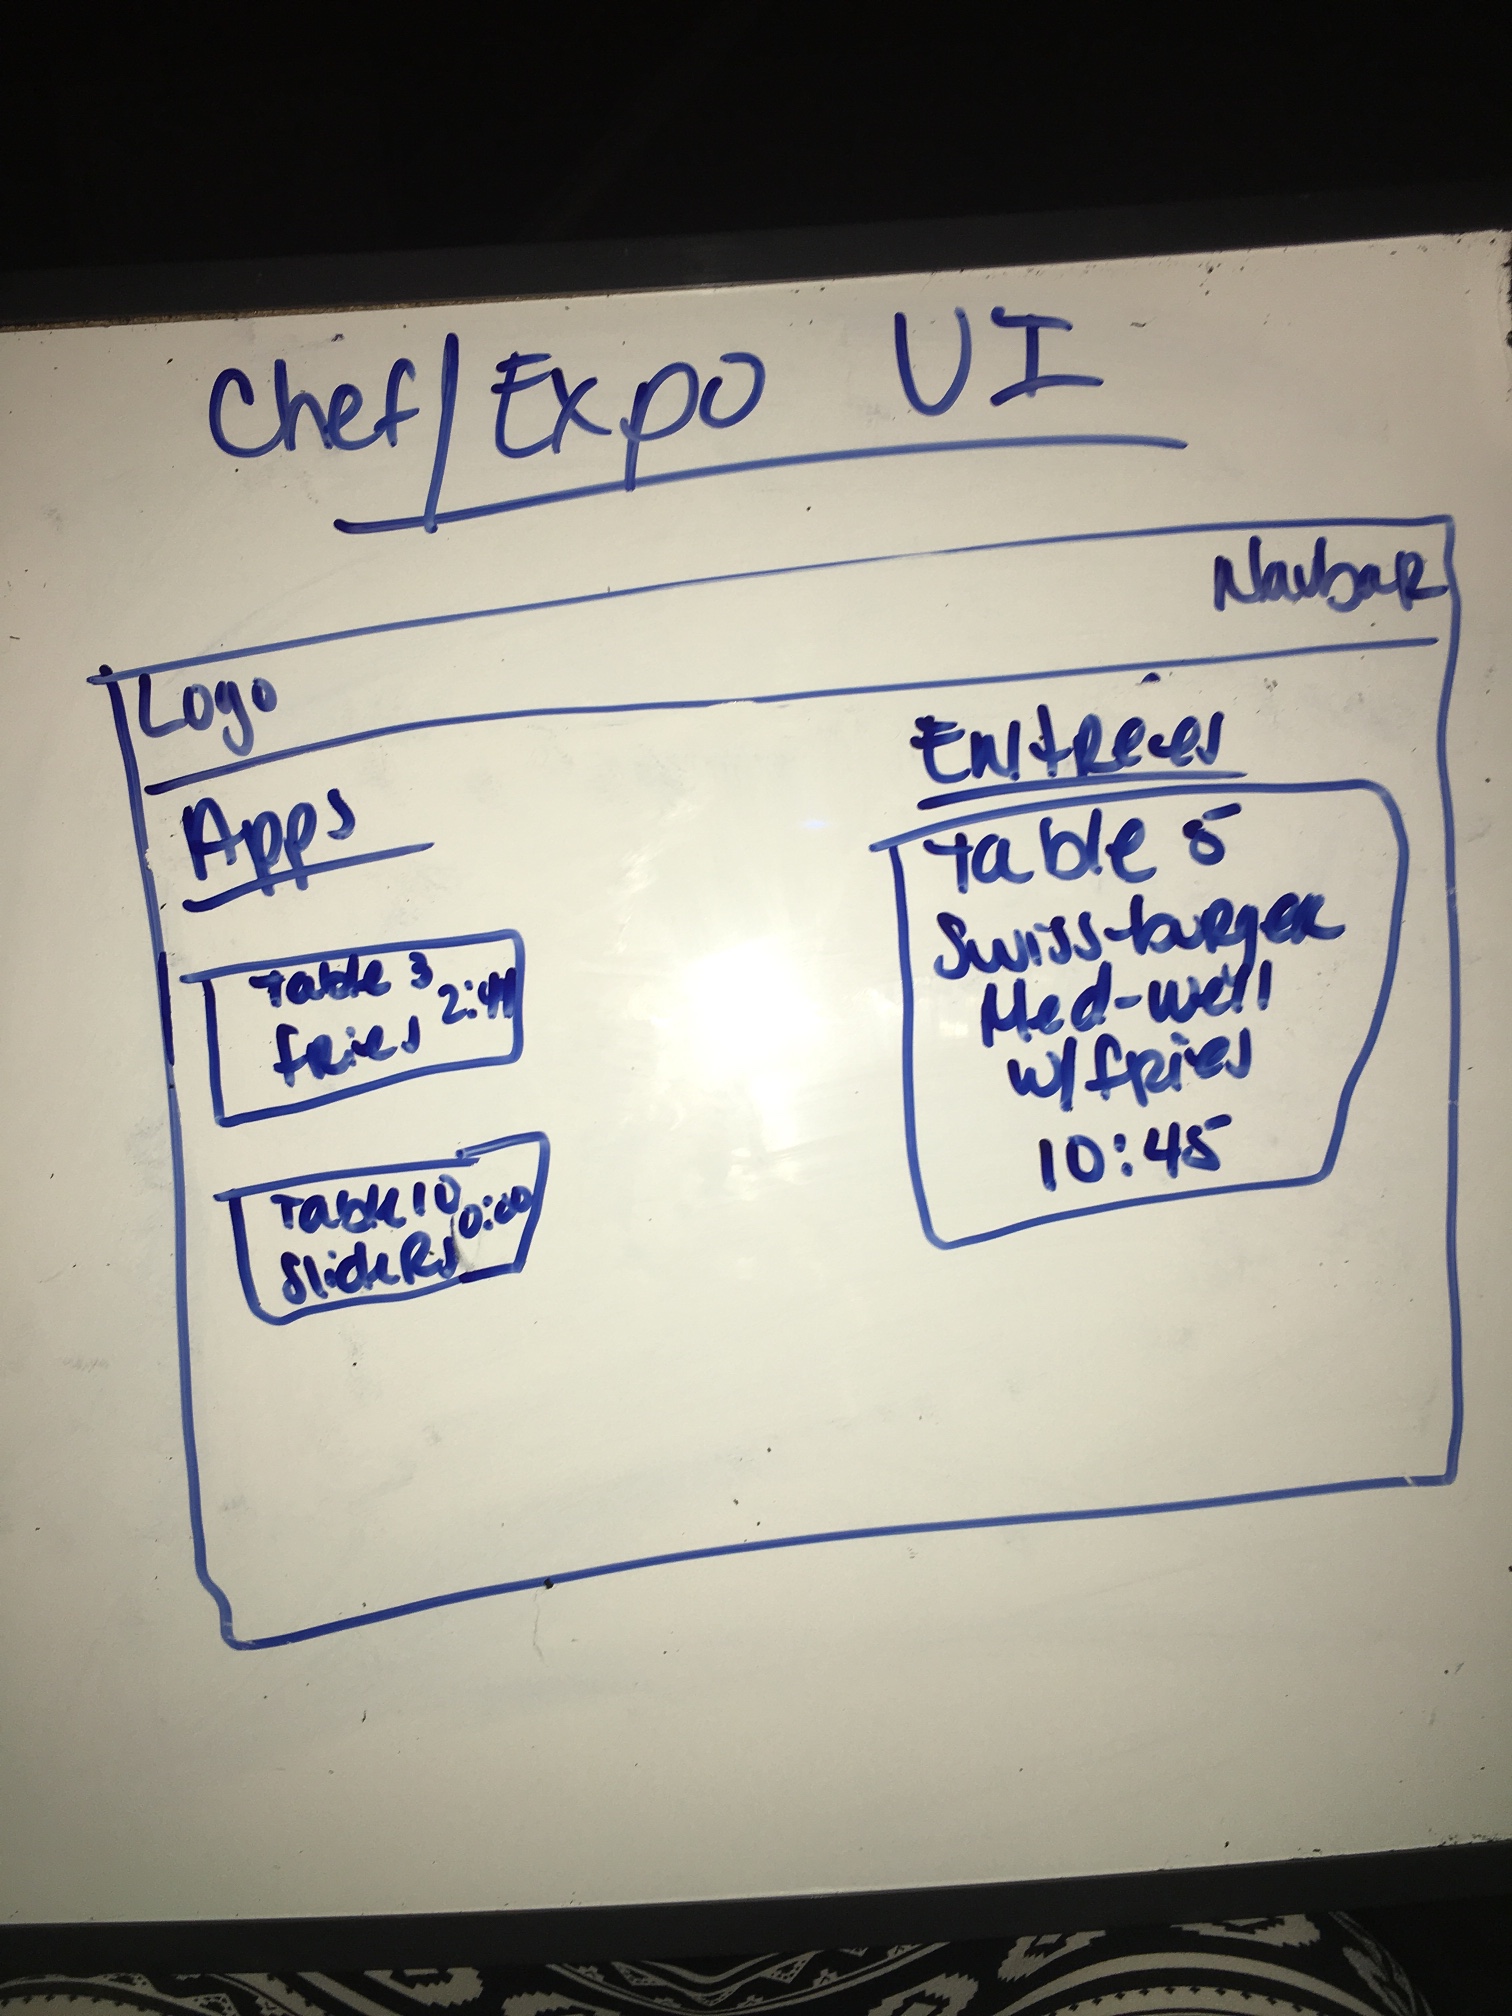 Chef/Expo UI
Navbar
Logo
Apps
Table 3
2:44
fries
Table 10
0:00
Sliders
Entrees
Table 5
Swiss-burger
Med-well
w/fries
10:45